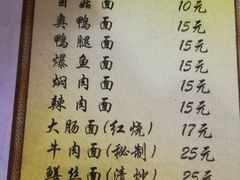 菇面 10元
臭鸭面 15元
鸭腿面 15元
爆鱼面 15元
焖肉面 15元
辣肉面 15元
大肠面(红烧) 17元
牛肉面(秘制) 25元
鳝丝面(清炒) 25元